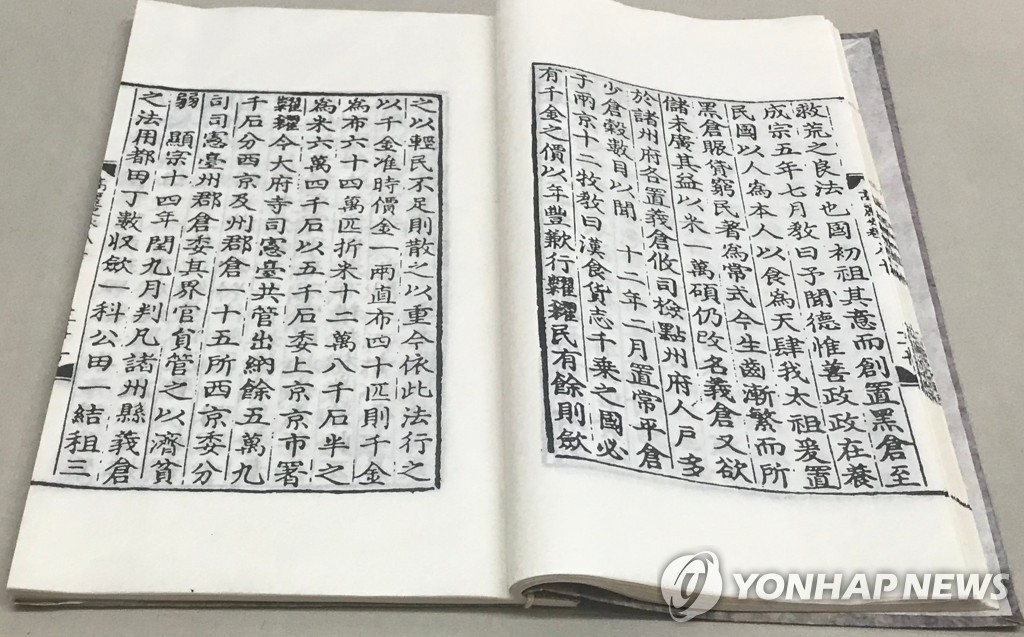 救荒之良法也國初祖其意而創置黑倉至
成宗五年七月教曰予聞德惟善政政在養
民國以人為本人以食為天肆我太祖爰置
黑倉賑貸窮民著為常式今生齒漸繁而所
儲未廣其益以米一萬碩仍改名義倉又欲
於諸州府各置義倉攸司檢點州府人戶多
少倉穀數目以聞 十二年二月置常平倉
于兩京十二牧教曰漢食貨志千乘之國必
有千金之價以年豐歉行糶糴民有餘則斂
之以輕民不足則散之以重今依此法行之
以千金准時價金一兩直布四十匹則千金
為布六十四萬匹折米十二萬八千石半之
為米六萬四千石以五千石委上京京市署
糶糴令大府寺司憲臺共管出納餘五萬九
千石分西京及州郡倉一十五所西京委分
司司憲臺州郡倉委其界官員管之以濟貧
弱 顯宗十四年閏九月判凡諸州縣義倉
之法用都田丁數收斂一科公田一結租三
YONHAP NEWS